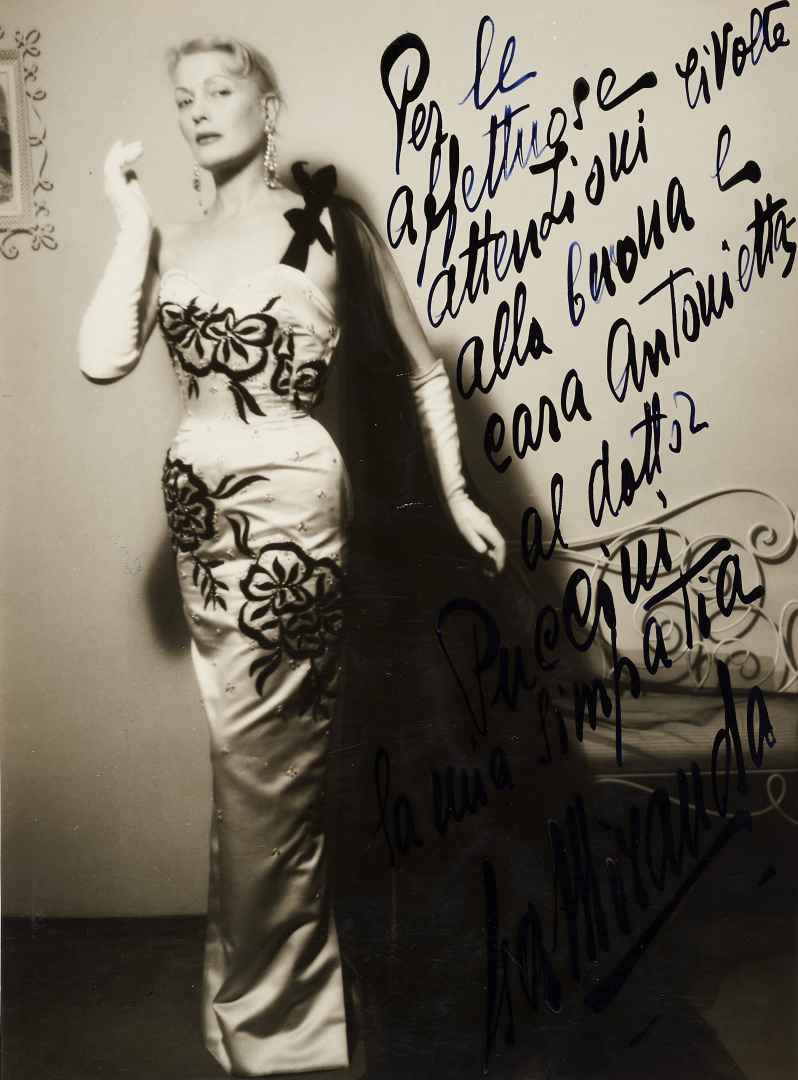 Per le
affettuose rivolte
attenzioni
alla buona e
cara Antonietta,
al dottor
Puccini
la mia simpatia
Isa Miranda